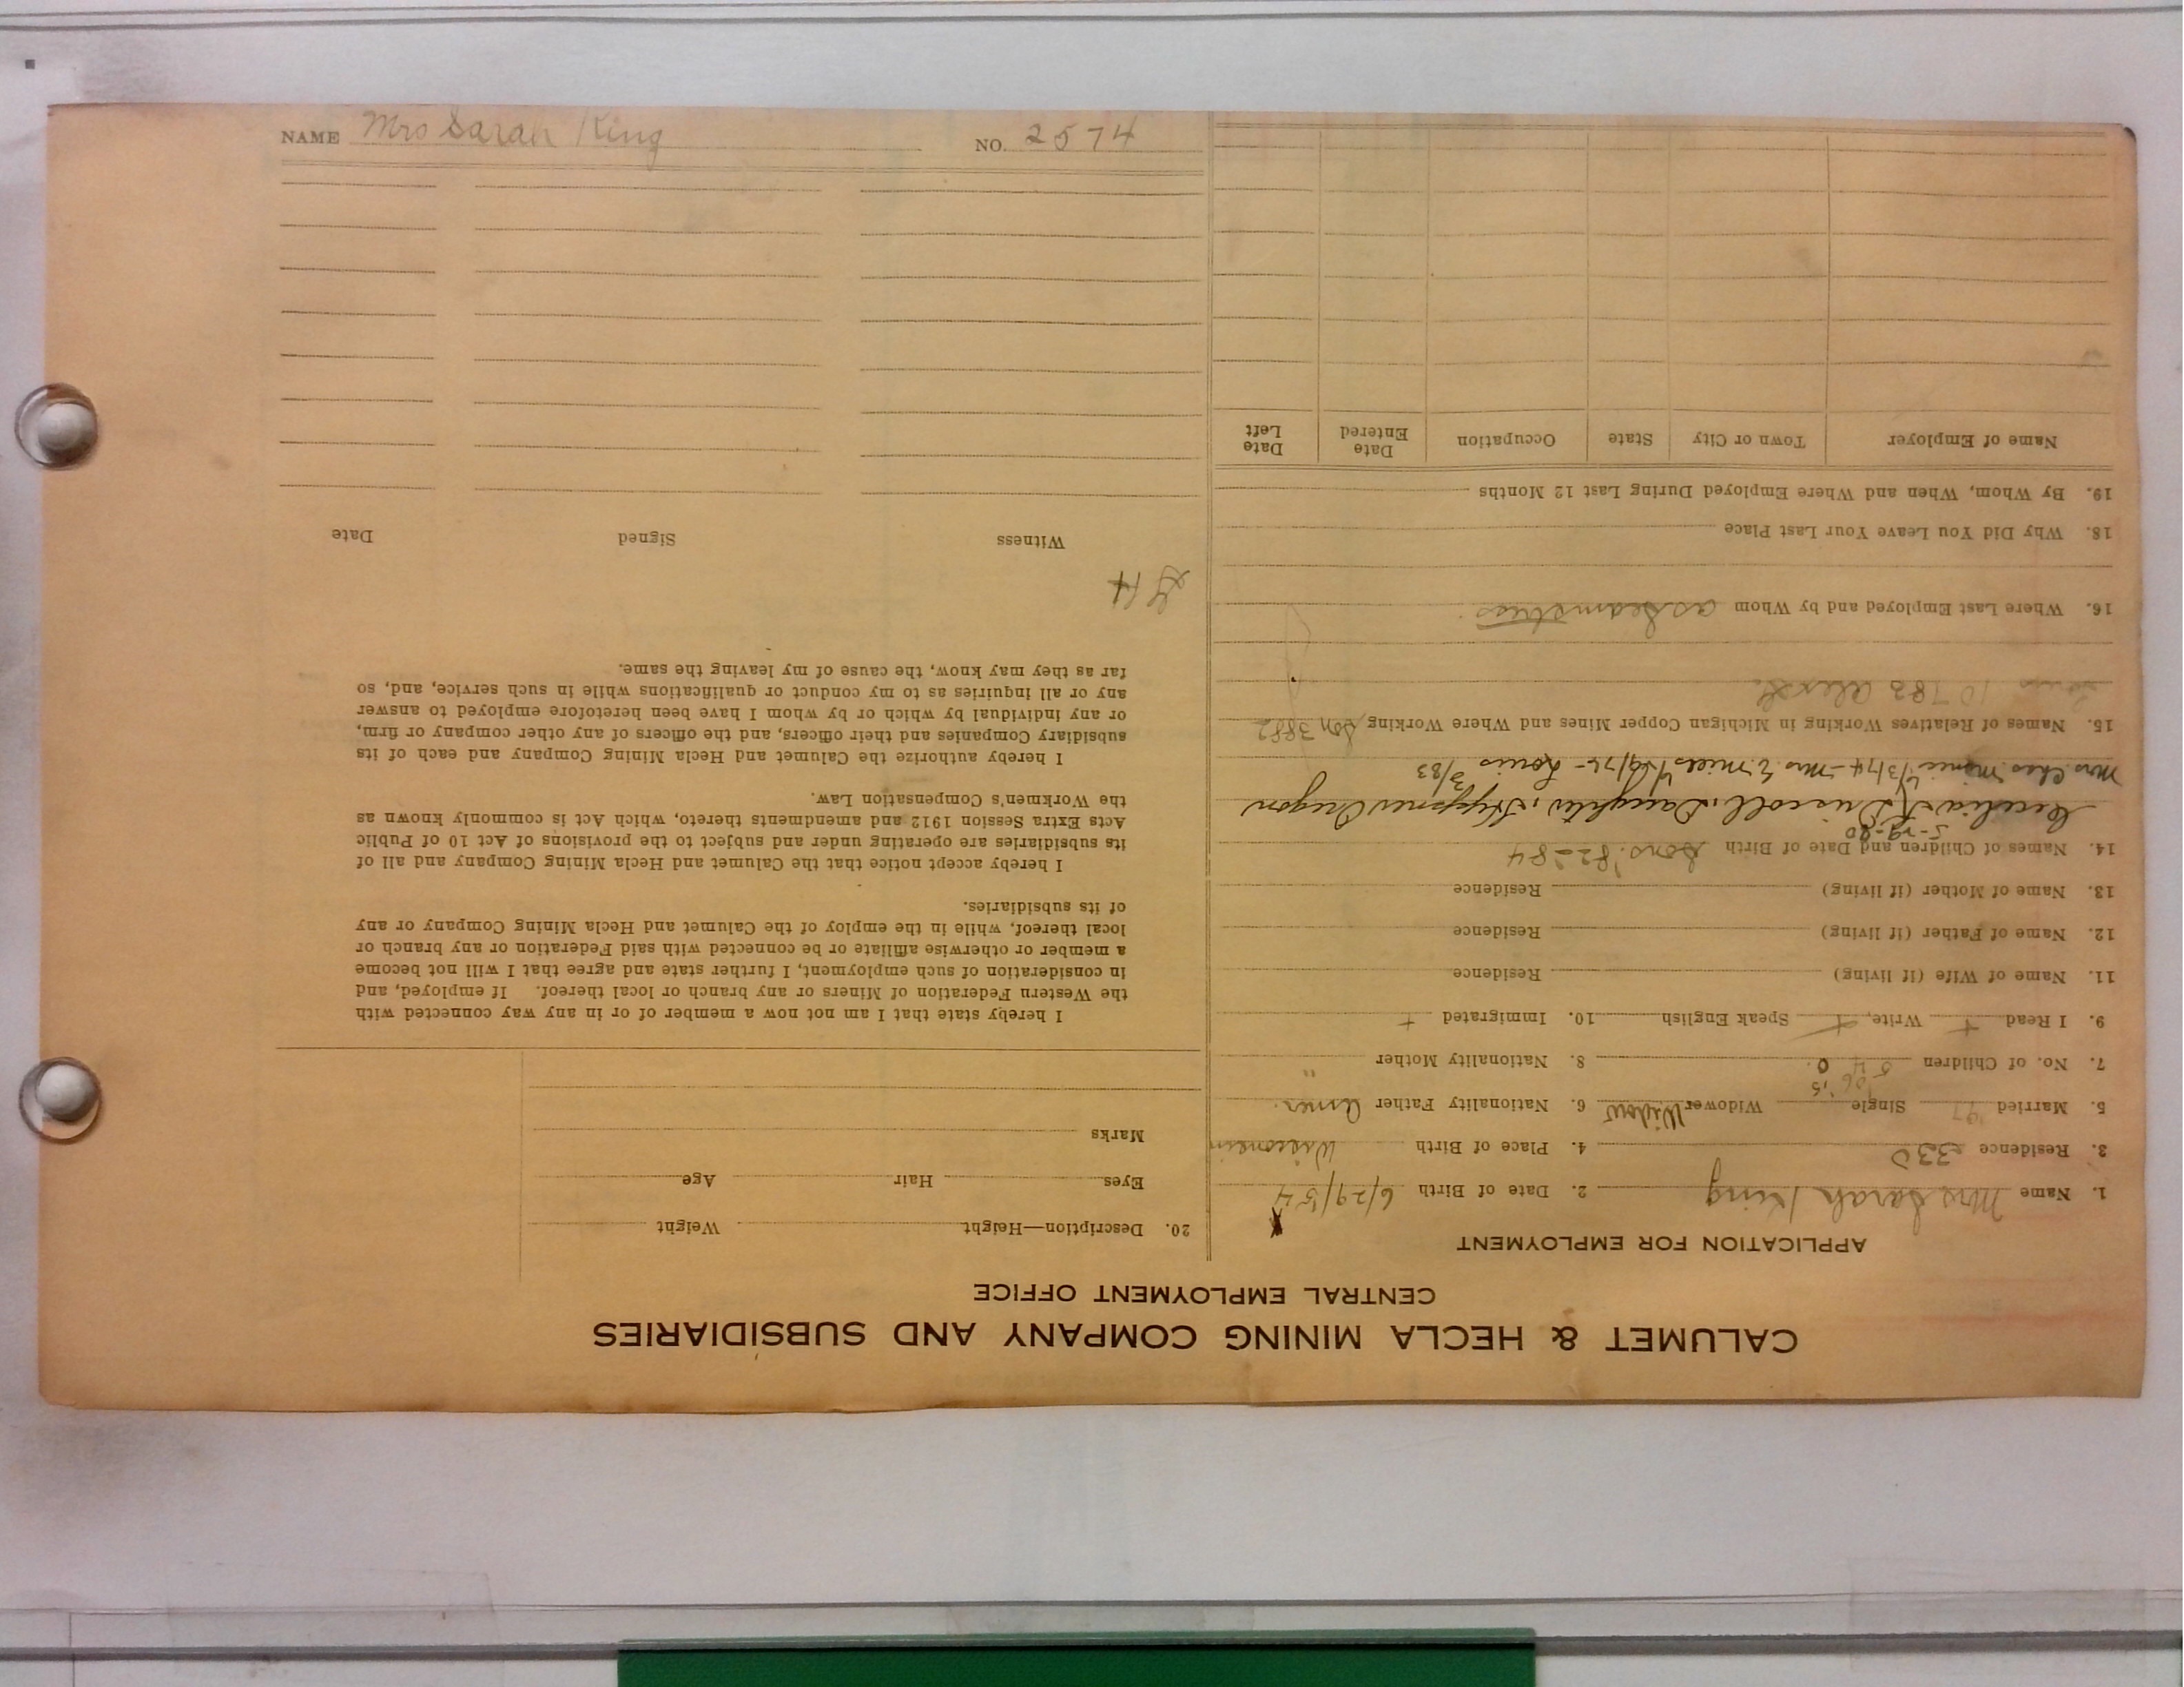 NAME Mrs Sarah King NO. 2574
CALUMET & HECLA MINING COMPANY AND SUBSIDIARIES
CENTRAL EMPLOYMENT OFFICE
APPLICATION FOR EMPLOYMENT
1. Name Mrs Sarah King 2. Date of Birth 6/29/54
3. Residence 330 4. Place of Birth Wisconsin
5. Married '97 Single Widower Widow 6. Nationality Father Amer.
'06 '15
7. No. of Children 5 4 0. 8. Nationality Mother "
9. I Read + Write, + Speak English 10. Immigrated +
11. Name of Wife (if living) Residence
12. Name of Father (if living) Residence
13. Name of Mother (if living) Residence
14. Names of Children and Date of Birth Sons. '82-'84
5-19-80
Cecelia Driscoll. Daughter, Oregon
Mrs Chas 4/3/74 - Mrs E. 4/29/75 - Louis 3/83
15. Names of Relatives Working in Michigan Copper Mines and Where Working Son 3882
Louis 10783 Alex
16. Where Last Employed and by Whom as Seamstress
18. Why Did You Leave Your Last Place
19. By Whom, When and Where Employed During Last 12 Months
Name of Employer Town or City State Occupation Date Entered Date Left
20. Description—Height Weight
Eyes Hair Age
Marks
I hereby state that I am not now a member of or in any way connected with
the Western Federation of Miners or any branch or local thereof. If employed, and
in consideration of such employment, I further state and agree that I will not become
a member or otherwise affiliate or be connected with said Federation or any branch or
local thereof, while in the employ of the Calumet and Hecla Mining Company or any
of its subsidiaries.
I hereby accept notice that the Calumet and Hecla Mining Company and all of
its subsidiaries are operating under and subject to the provisions of Act 10 of Public
Acts Extra Session 1912 and amendments thereto, which Act is commonly known as
the Workmen's Compensation Law.
I hereby authorize the Calumet and Hecla Mining Company and each of its
subsidiary Companies and their officers, and the officers of any other company or firm,
or any individual by which or by whom I have been heretofore employed to answer
any or all inquiries as to my conduct or qualifications while in such service, and, so
far as they may know, the cause of my leaving the same.
Witness Signed Date